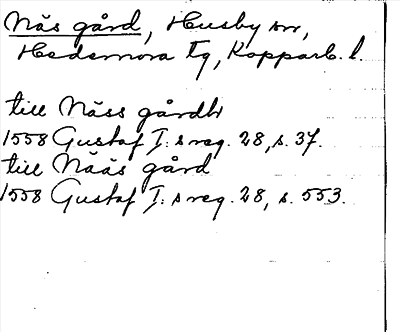 Näs gård, Husby sn,
Hedemora tg, Kopparb. l.
till Näss gårdh
1558 Gustaf I:s reg. 28, s. 37.
till Näås gård
1558 Gustaf I:s reg. 28, s. 553.